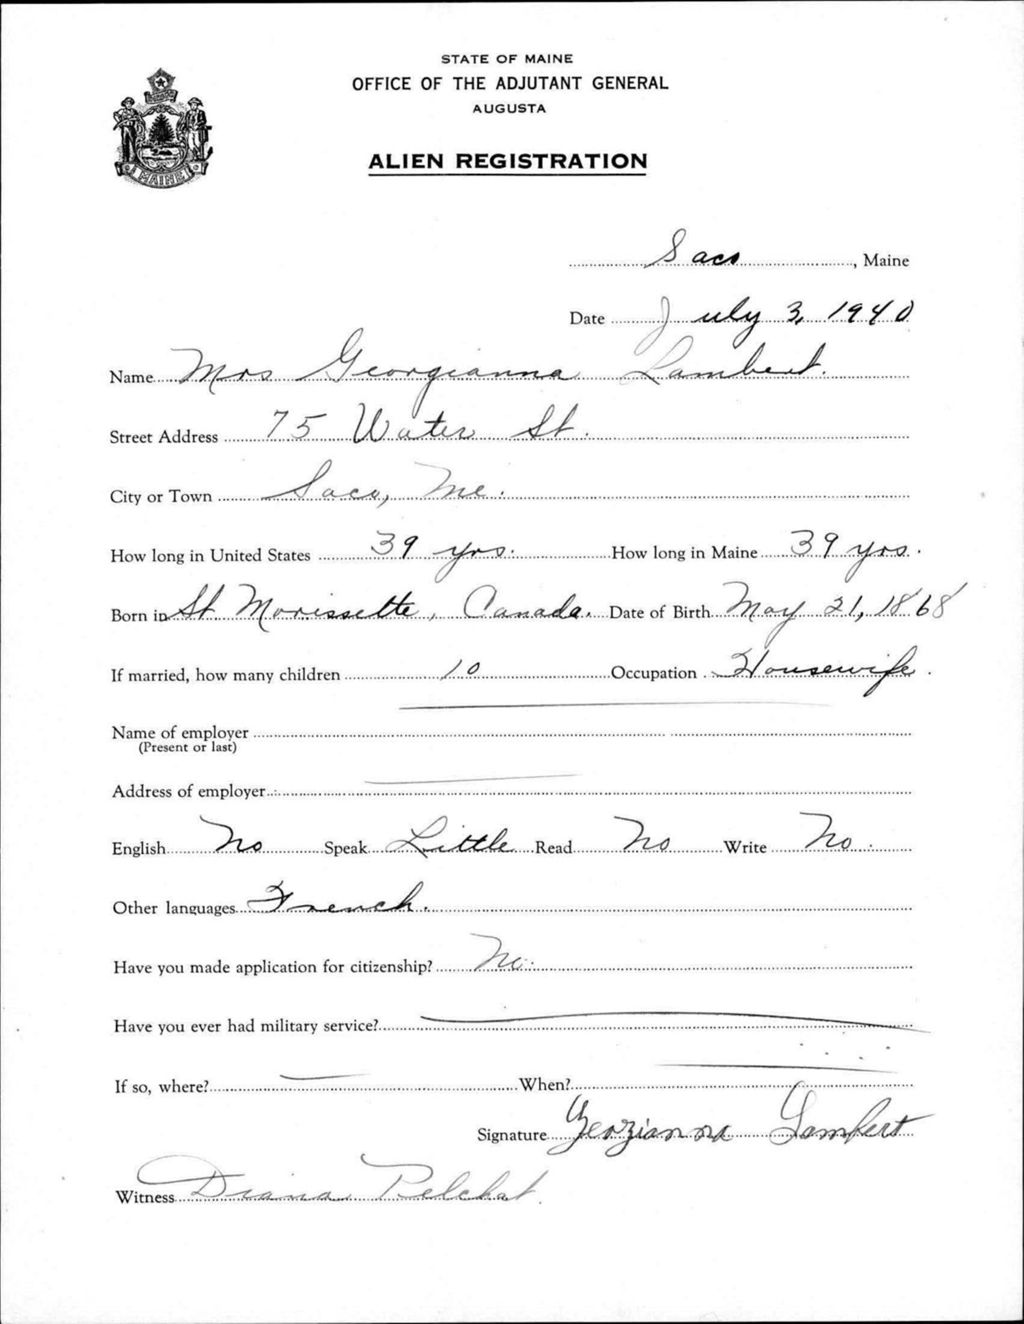 STATE OF MAINE
OFFICE OF THE ADJUTANT GENERAL
AUGUSTA
ALIEN REGISTRATION
MAINE
Saco, Maine
Date July 3, 1940
Name Mrs Georgianna Lambert.
Street Address 75 Water St.
City or Town Saco, Me.
How long in United States 39 yrs. How long in Maine 39 yrs.
Born in St Morissette, Canada. Date of Birth May 21, 1868
If married, how many children 10 Occupation Housewife.
Name of employer
(Present or last)
Address of employer
English No Speak Little Read No Write No.
Other languages French.
Have you made application for citizenship? No.
Have you ever had military service?
If so, where? When?
Signature Georgianna Lambert
Witness Diana